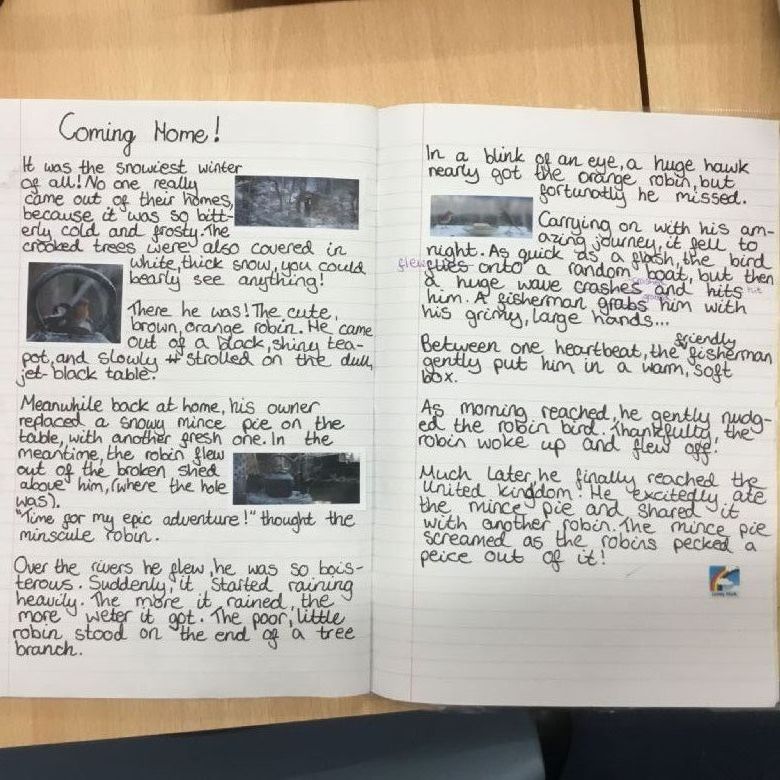 Coming Home!
It was the snowiest winter
of all! No one really
came out of their homes,
because it was so bitt-
erly cold and frosty. The
crooked trees were also covered in
white, thick snow, you could
bearly see anything!
There he was! The cute,
brown, orange robin. He came
out of a black, shiny tea-
pot, and slowly strolled on the dull,
jet-black table.
Meanwhile back at home, his owner
replaced a snowy mince pie on the
table, with another fresh one. In the
meantime, the robin flew
out of the broken shed
above him, (where the hole
was).
"Time for my epic adventure!" thought the
minscule robin.
Over the rivers he flew, he was so bois-
terous. Suddenly, it started raining
heavily. The more it rained, the
more weter it got. The poor, little
robin stood on the end of a tree
branch.
In a blink of an eye, a huge hawk
nearly got the orange robin, but
fortunatly he missed.
Carrying on with his am-
azing journey, it fell to
night. As quick as a flash, the bird
flew flies onto a random boat, but then
a huge wave crashes and hits hit
him. A fisherman grabs him with
his grimy, large hands...
Between one heartbeat, the friendly fisherman
gently put him in a warm, soft
box.
As morning reached, he gently nudg-
ed the robin bird. Thankfully, the
robin woke up and flew off!
Much later, he finally reached the
United Kingdom! He excitedly ate
the mince pie and shared it
with another robin. The mince pie
screamed as the robins pecked a
peice out of it!